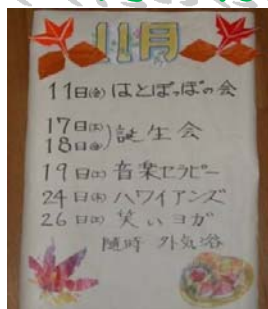 11月
11日(金) はとぽっぽの会
17日(木)
18日(金) 誕生会
19日(土) 音楽セラピー
24日(木) ハワイアンズ
26日(土) 笑いヨガ
随時 外気浴